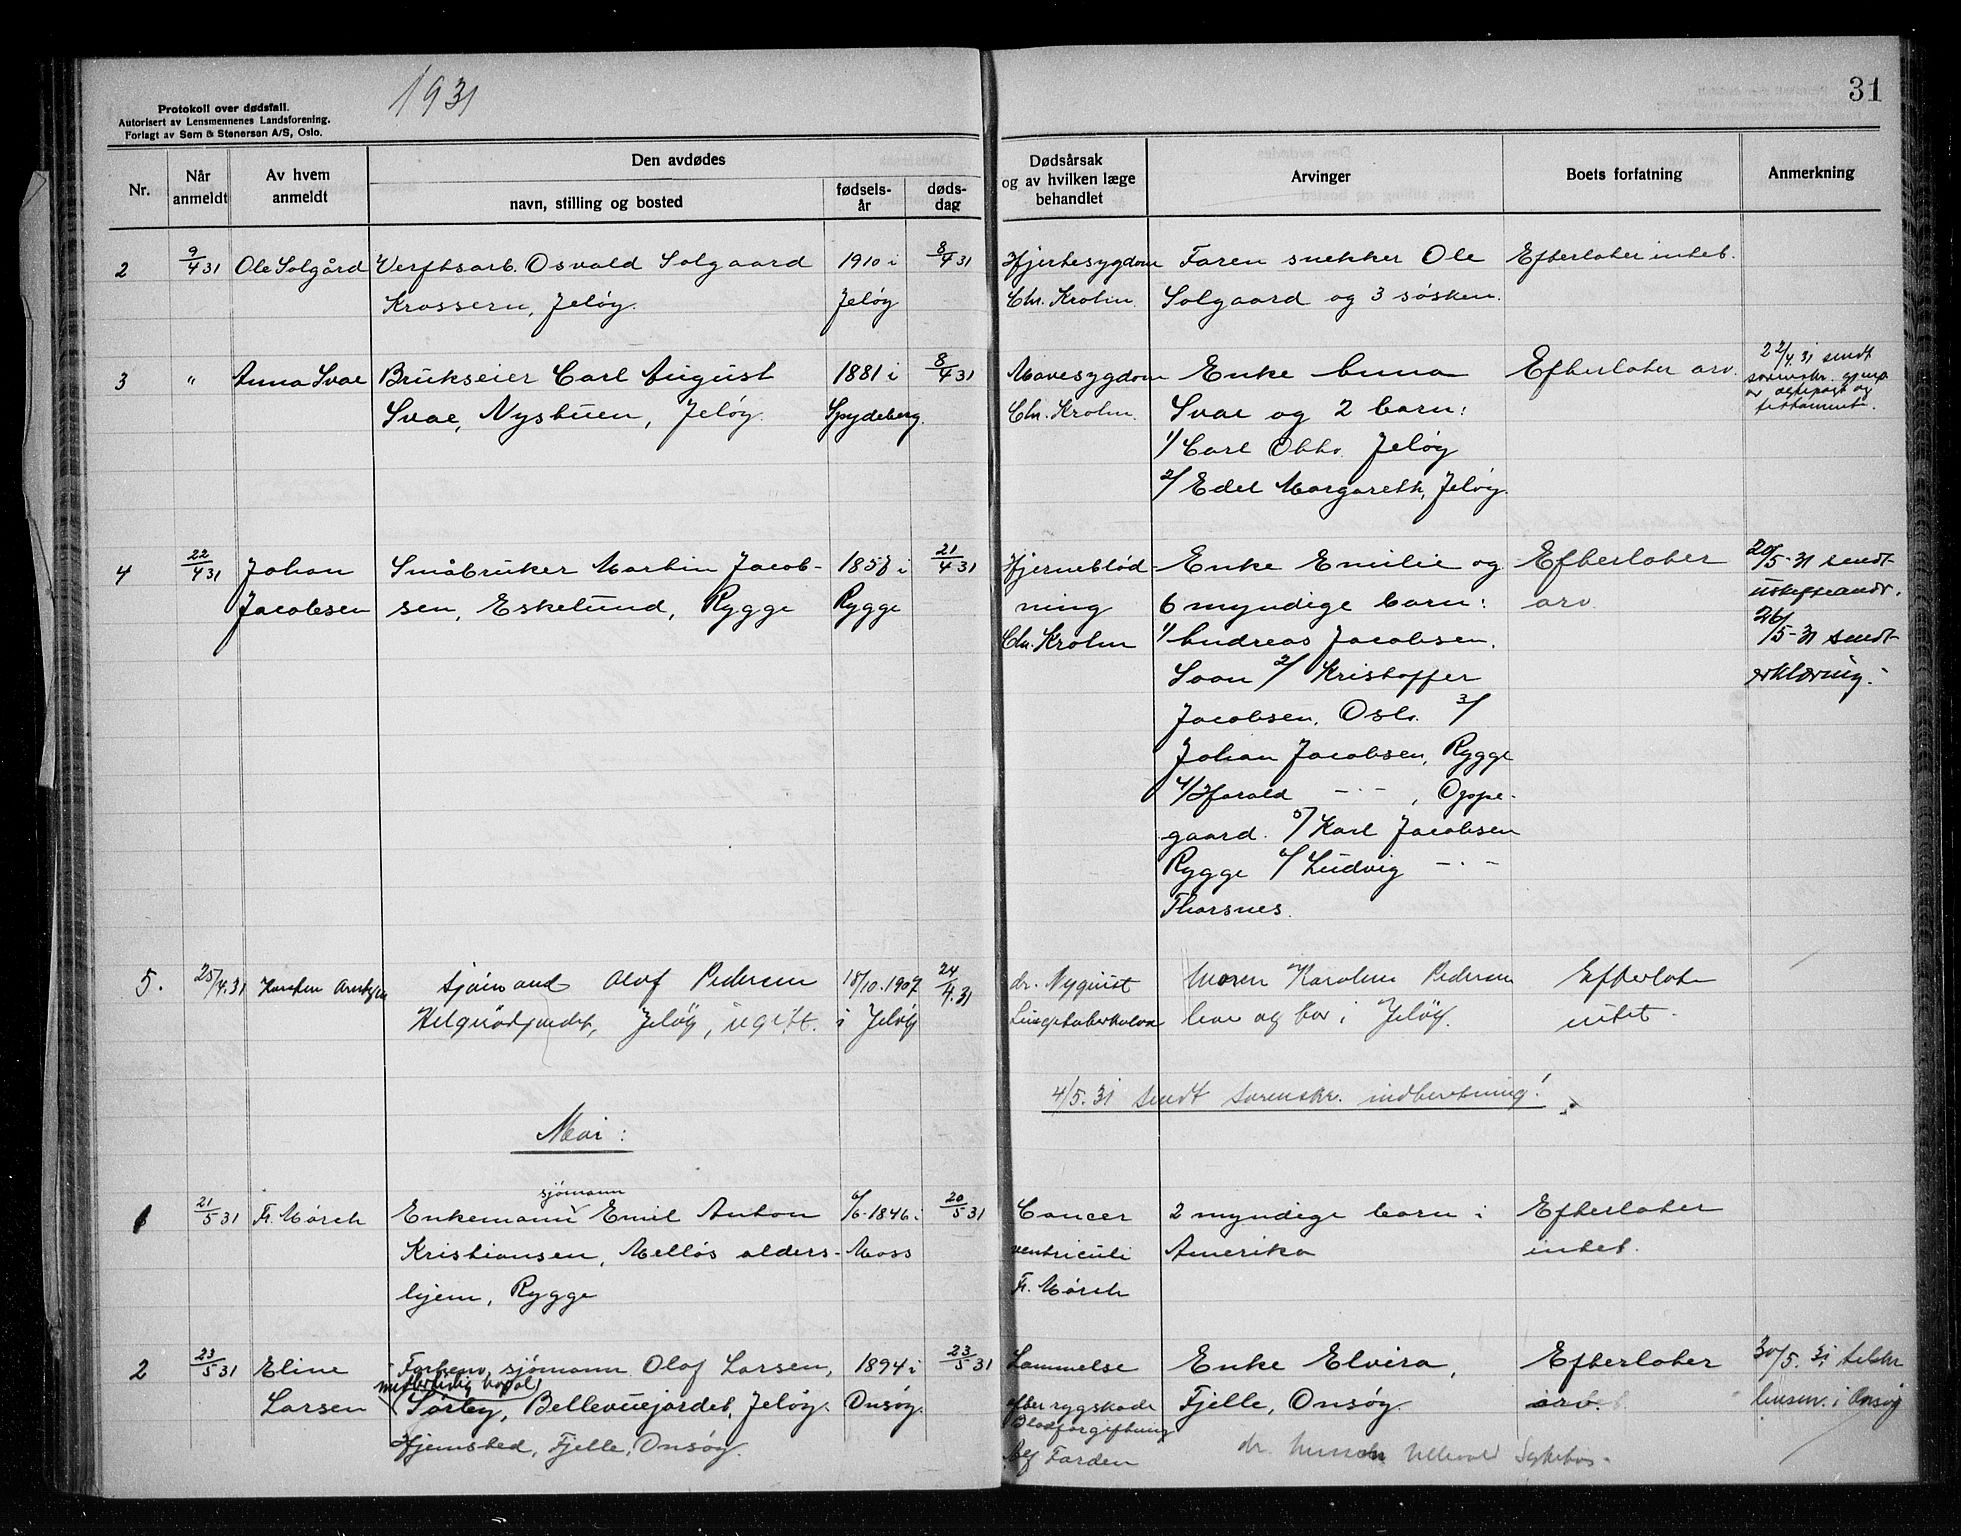 1931
31
Protokoll over dødsfall.
Autorisert av Lensmennenes Landsforening.
Forlagt av Sem & Stenersen A/S, Oslo.
Nr.
Når anmeldt
Av hvem anmeldt
Den avdødes
navn, stilling og bosted
fødsels-år
døds-dag
Dødsårsak og av hvilken læge behandlet
Arvinger
Boets forfatning
Anmerkning
2 9/4 31 Ole Solgård Verftsarb. Osvald Solgaard 1910 i 8/4 31 Hjertesygdom Faren snekker Ole Efterlater intet.
Krossern, Jeløy. Jeløy Chr. Krohn. Solgaard og 3 søsken.
3 " Anna Svae Brukseier Carl August 1881 i 8/4 31 Mavesygdom Enke Anna Efterlater arv. 22/4 31 sendt
Svae, Nystuen, Jeløy. Spydeberg. Chr. Krohn. Svae og 2 barn: sorenskr. gjenp.
av ektepakt og
testament.
1/ Carl Otto. Jeløy
2/ Edel Margareth, Jeløy.
4 22/4 31 Johan Småbruker Martin Jacob- 1858 i 21/4 31 Hjerneblød- Enke Emilie og Efterlater 20/5-31 sendt
Jacobsen sen, Eskelund, Rygge Rygge ning 6 myndige barn: arv.
Chr. Krohn 1/ Andreas Jacobsen. 26/5-31 sendt
Soon 2/ Kristoffer erklæring.-
Jacobsen, Oslo. 3/
Johan Jacobsen, Rygge
4/ Harald -·-, Oppe-
gaard. 5/ Karl Jacobsen
Rygge 6/ Ludvig -·-
Thorsnes.
5. 25/4.31 Karsten sjømand Olof Pedersen 18/10.1907 24/4.31 dr. Nyquist Moren Karoline Pedersen Efterlater
Jeløy, ugift. i Jeløy Lungetuberkulose lever og bor i Jeløy. intet.
4/5.31 sendt sorenskr. indberetning!
Mai:
sjømann
1 21/5 31 Fr. Mørch Enkemann Emil Anton 6/6-1846 i 20/5 31 Cancer 2 myndige barn i Efterlater
Kristiansen, Melløs alders- Moss ventriculi Amerika intet.
hjem, Rygge Fr. Mørch
2 23/5 31 Eline Forhenv. sjømann Olaf Larsen, 1894 i 23/5 31 Lammelse Enke Elvira, Efterlater 30/5. 31 tilskr.
midlertidig bopæl
Larsen Sørby, Bellevuejordet, Jeløy. Onsøy. efter rygskade Fjelle, Onsøy. arv. lensm. i Onsøy
Blodforgiftning
Hjemsted, Fjelle, Onsøy. Alf Farden dr. Munch Ullevål Sykehus.